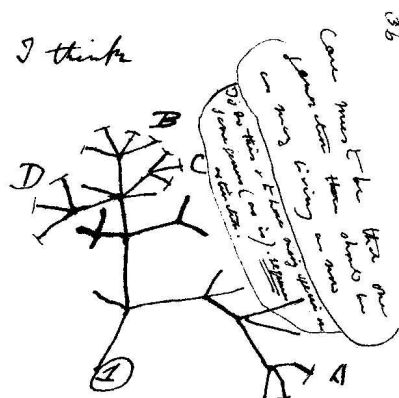 I think
B
C
D
A
1
36
Case must be that one
generation then should be
as many living as now
To do this & to have many species in
same genus (as is). requires
extinction